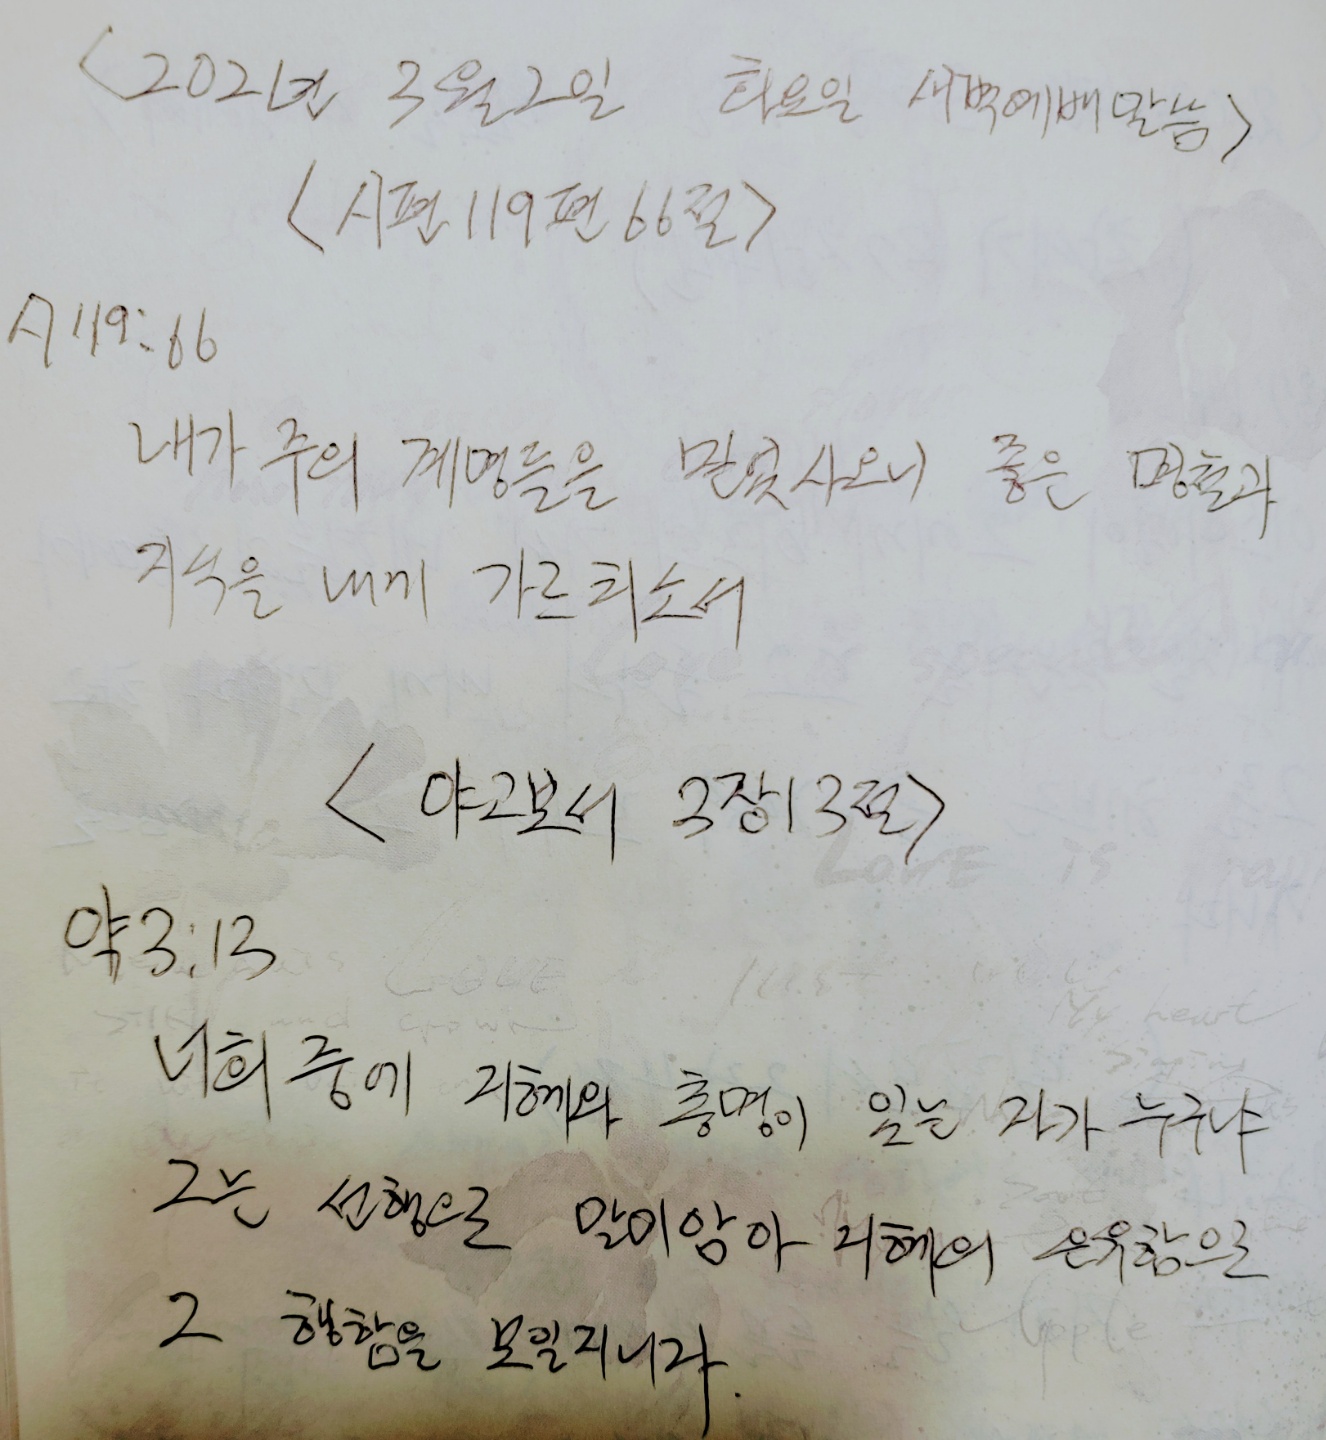 <2021년 3월 2일 화요일 새벽예배말씀>
<시편119편 66절>
시119:66
내가 주의 계명들을 믿었사오니 좋은 명철과
지식을 내게 가르치소서
<야고보서 3장13절>
약3:13
너희 중에 지혜와 총명이 있는 자가 누구냐
그는 선행으로 말미암아 지혜의 온유함으로
그 행함을 보일지니라.